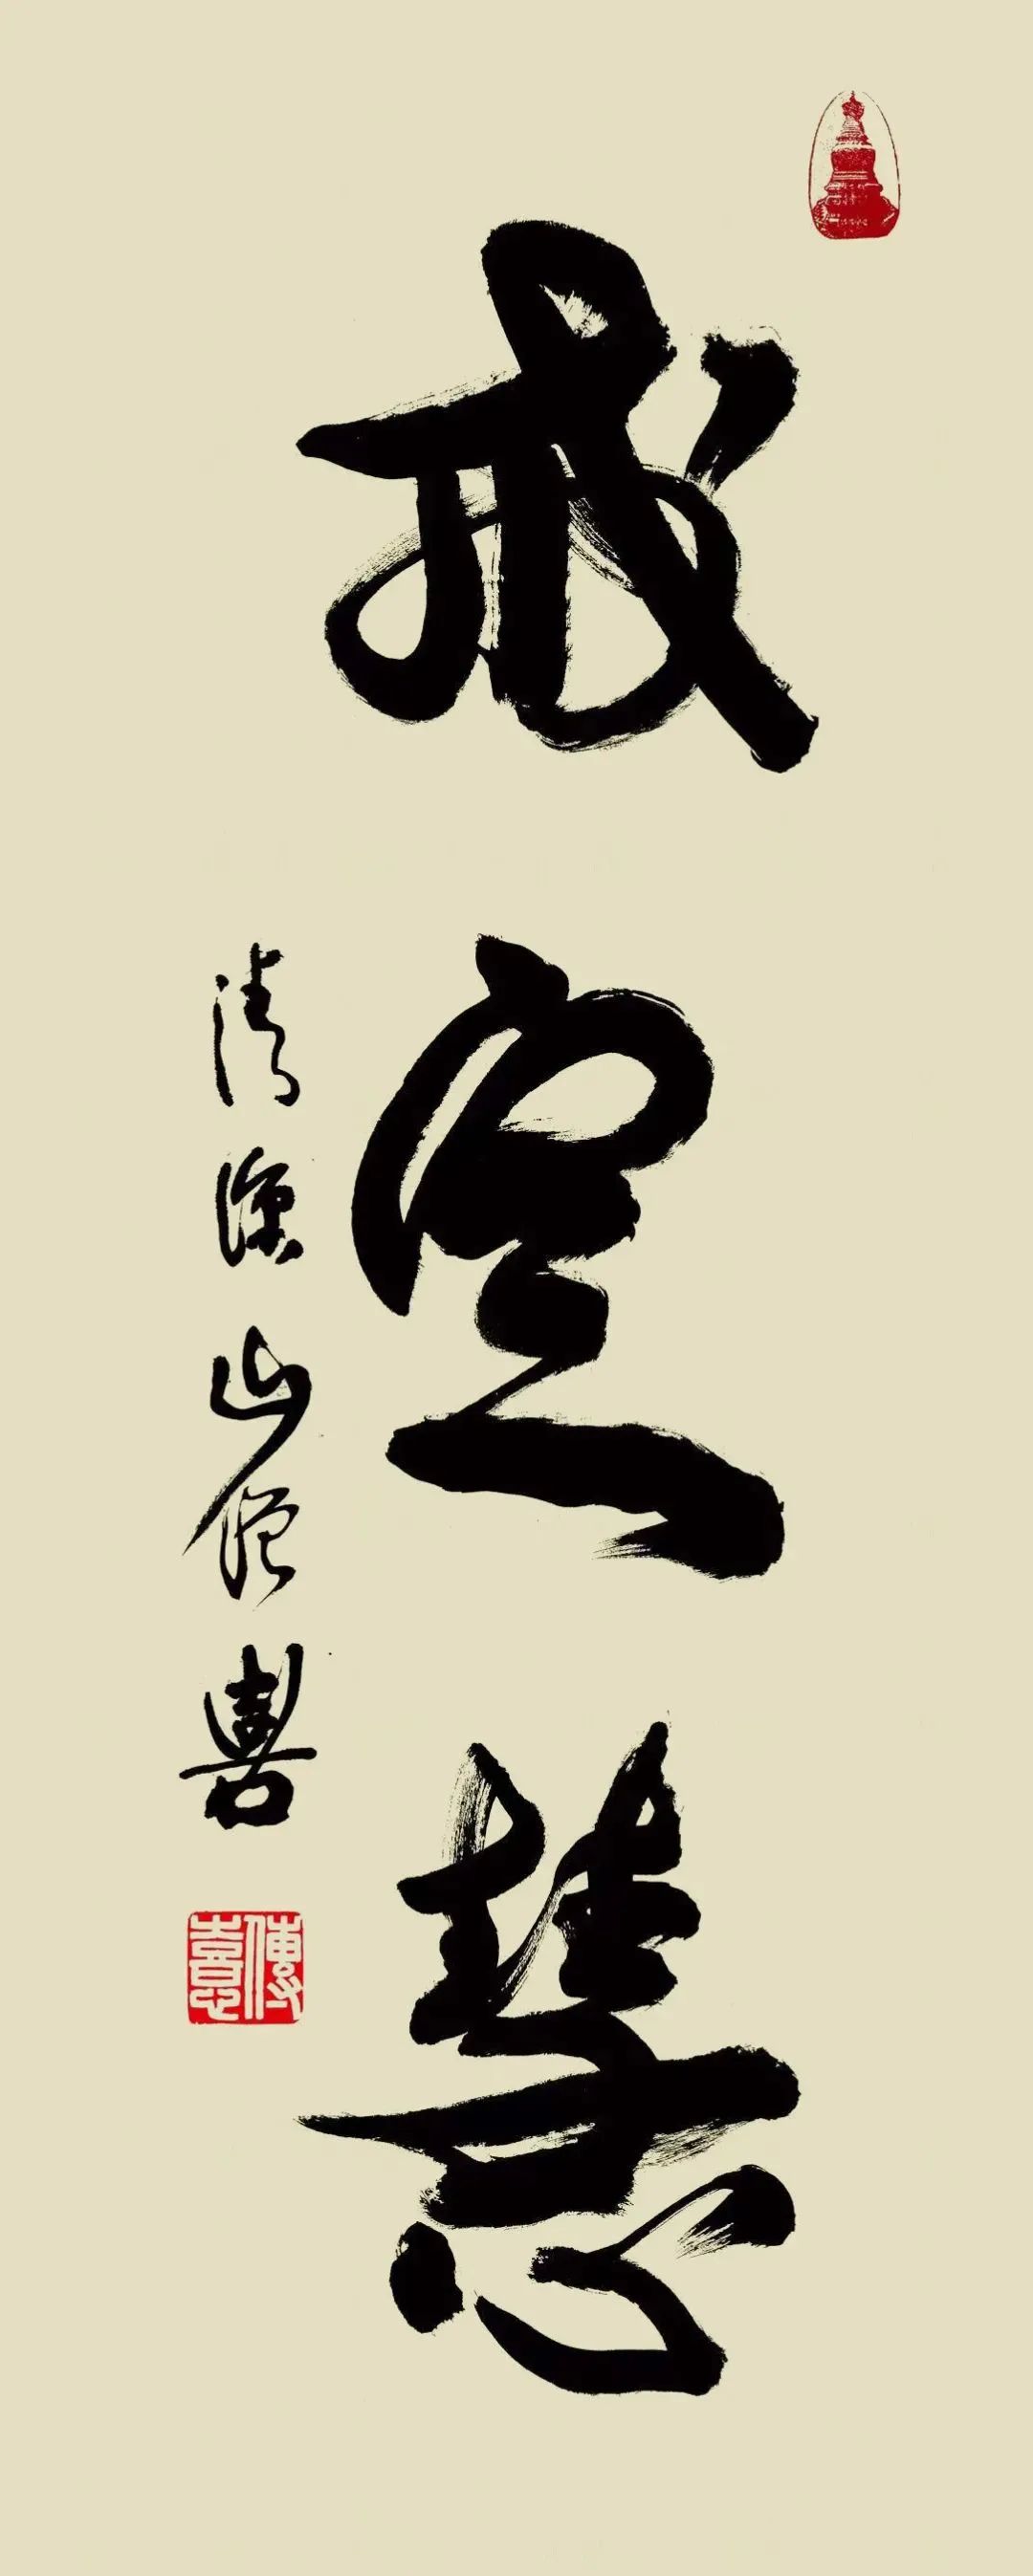 戒定慧
清凉山僧喜
傳喜